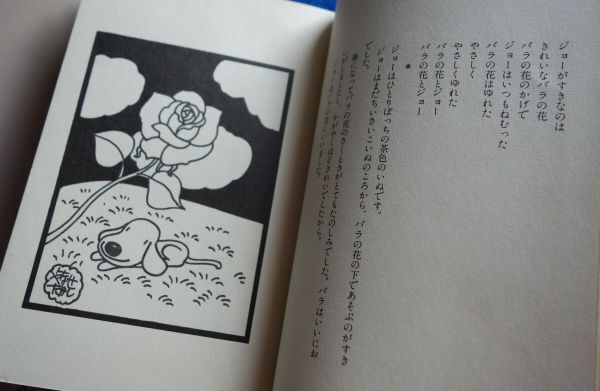 ジョーがすきなのは
きれいなバラの花
バラの花のかげで
ジョーはいつもねむった
バラの花はゆれた
やさしく
やさしくゆれた
バラの花とジョー
バラの花とジョー
＊
ジョーはひとりぼっちの茶色のいぬです。
ジョーはまだちいさいこいぬのころから、バラの花の下であそぶのがすき
でした。
春になってバラの花のさくときがとてもたのしみでした。バラはいいにお
いがしましたし、かがやくほどきれいでしたから。
ジョーはバラの花にいいました。